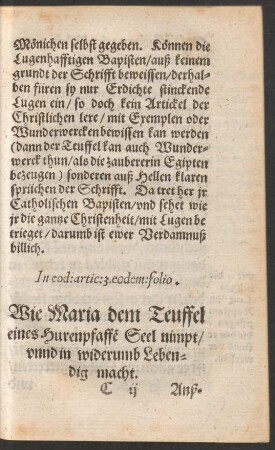 Mönichen selbst gegeben. Können die
Lugenhafftigen Bapisten/auß keinem
grundt der Schrifft beweissen/derhal-
ben füren sy nur Erdichte stinckende
Lugen ein/so doch kein Artickel der
Christlichen lere/mit Exempeln oder
Wunderwercken bewissen kan werden
(dann der Teuffel kan auch Wunder-
werck thun/als die zaubererin Egipten
bezeugen) sonderen auß Hellen klaren
sprüchen der Schrifft. Da tret her jr
Catholischen Bapisten/vnd sehet wie
jr die gantze Christenheit/mit Lugen be
trieget/darumb ist ewer Verdamnuß
billich.
In eod:artic:3.eodem:folio.
Wie Maria dem Teuffel
eines Hurenpfaffẽ Seel nimpt/
vnnd in widerumb Leben-
dig macht.
C ij Auß-